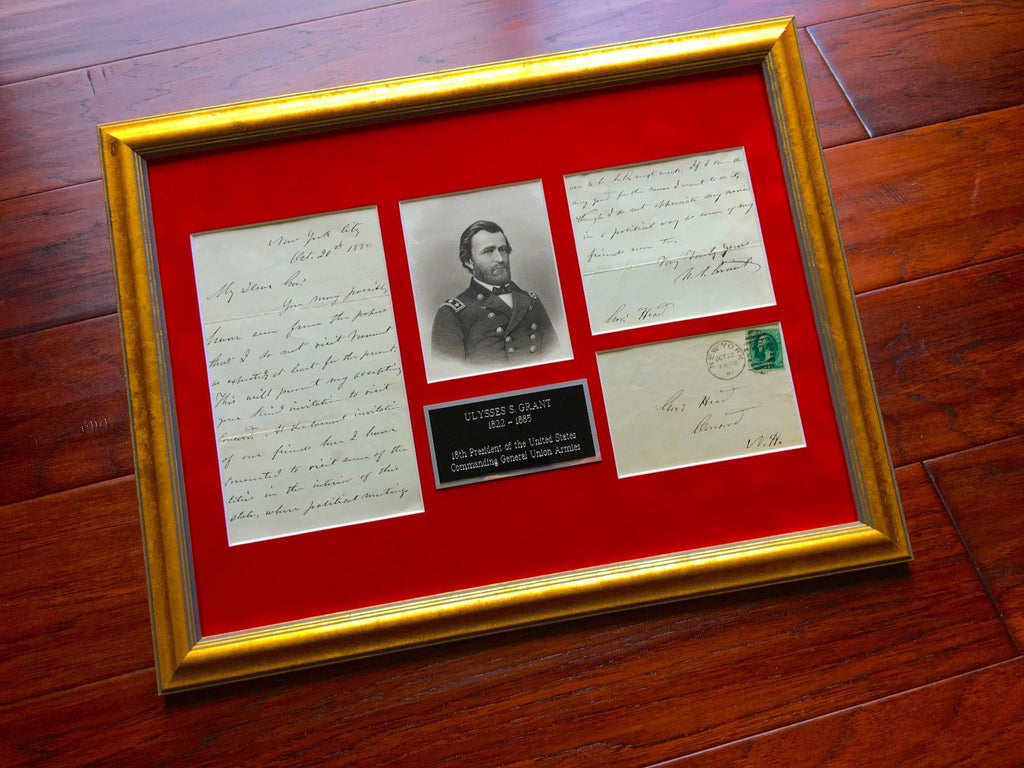 New York City
Oct. 20th 1880
My Dear Gov.
You may possibly
have seen from the papers
that I do not visit Vermont
as expected, at least for the present.
This will prevent my accepting
your kind invitation to visit
Concord. At the earnest invitation
of our friends here I have
consented to visit some of the
cities in the interior of this
state, where political meetings
are to be held next week. If I can do
any good for the cause I want to do it,
though I do not appreciate my services
in a political way as some of my
friends seem to.
Very Truly Yours
U. S. Grant
Gov. Head
ULYSSES S. GRANT
1822 - 1885
18th President of the United States
Commanding General Union Armies
NEW YORK
OCT 20
Gov. Head
Concord
N.H.